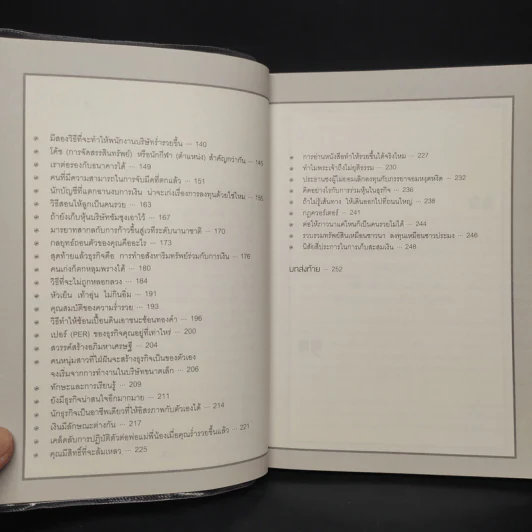 มีสองวิธีที่จะทำให้พนักงานบริษัทร่ำรวยขึ้น -- 140
โค้ช (การจัดสรรสินทรัพย์) หรือนักกีฬา (ตำแหน่ง) สำคัญกว่ากัน -- 145
เราต่อรองกับธนาคารได้ -- 148
คนที่มีความสามารถในการจับมีดที่ตกแล้ว -- 151
นักบัญชีที่แตกฉานงบการเงิน น่าจะเก่งเรื่องการลงทุนด้วยใช่ไหม -- 155
วิธีสอนให้ลูกเป็นคนรวย -- 163
ถ้ายังเก็บหุ้นบริษัทซัมซุงเอาไว้ -- 167
มารยาทสากลกับการก้าวขึ้นสู่เวทีระดับนานาชาติ -- 170
กลยุทธ์ถอนตัวของคุณคืออะไร -- 173
สุดท้ายแล้วธุรกิจคือ การทำอสังหาริมทรัพย์ร่วมกับการเงิน -- 176
คนเก่งก็ตกหลุมพรางได้ -- 180
วิธีที่จะไม่ถูกหลอกลวง -- 184
หัวเย็น เท้าอุ่น ไม่กินอิ่ม -- 191
คุณสมบัติของความร่ำรวย -- 193
วิธีทำให้ช้อนเปื้อนดินเอาชนะช้อนทองคำ -- 196
เปอร์ (PER) ของธุรกิจคุณอยู่ที่เท่าไหร่ -- 200
สวรรค์สร้างอภิมหาเศรษฐี -- 204
คนหนุ่มสาวที่ใฝ่ฝันจะสร้างธุรกิจเป็นของตัวเอง
จงเริ่มจากการทำงานในบริษัทขนาดเล็ก -- 206
ทักษะและการเรียนรู้ -- 209
ยังมีธุรกิจน่าสนใจอีกมากมาย -- 211
นักธุรกิจเป็นอาชีพเดียวที่ให้อิสรภาพกับตัวเองได้ -- 214
เงินมีลักษณะต่างกัน -- 217
เคล็ดลับการปฏิบัติตัวต่อพ่อแม่พี่น้องเมื่อคุณร่ำรวยขึ้นแล้ว -- 221
คุณมีสิทธิ์ที่จะล้มเหลว -- 225
การอ่านหนังสือทำให้รวยขึ้นได้จริงไหม -- 227
ทำไมพระเจ้าถึงไม่ยุติธรรม -- 230
ประธานซงผู้ไม่ยอมเลิกลงทุนกับภรรยาจอมหงุดหงิด -- 232
คิดอย่างไรกับการร่วมหุ้นในธุรกิจ -- 236
ถ้าไม่รู้เส้นทาง ให้เดินออกไปที่ถนนใหญ่ -- 239
กฎควอร์เตอร์ -- 241
ต่อให้ภาวนาแค่ไหนก็เป็นคนรวยไม่ได้ -- 244
รวบรวมทรัพย์สินเหมือนชาวนา ลงทุนเหมือนชาวประมง -- 246
นิสัยสี่ประการในการเก็บสะสมเงิน -- 248
บทส่งท้าย -- 252